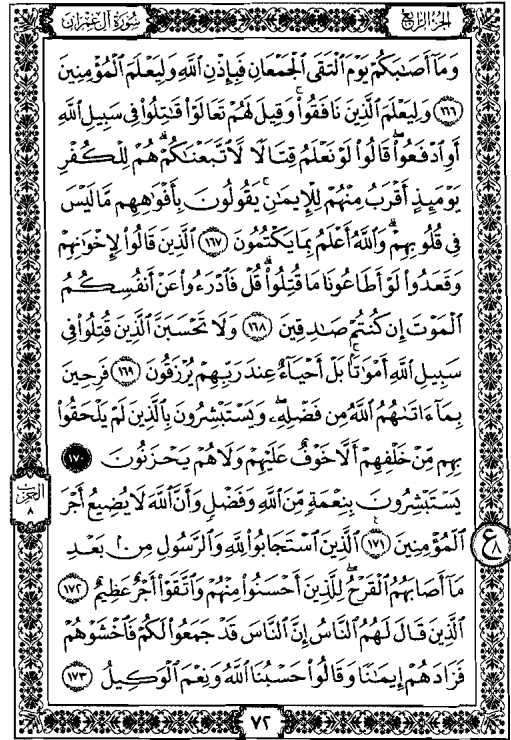 الجزء الرابع
سورة آل عمران
وَمَآ أَصَٰبَكُمۡ يَوۡمَ ٱلۡتَقَى ٱلۡجَمۡعَانِ فَبِإِذۡنِ ٱللَّهِ وَلِيَعۡلَمَ ٱلۡمُؤۡمِنِينَ
١٦٦ وَلِيَعۡلَمَ ٱلَّذِينَ نَافَقُواْۚ وَقِيلَ لَهُمۡ تَعَالَوۡاْ قَٰتِلُواْ فِي سَبِيلِ ٱللَّهِ
أَوِ ٱدۡفَعُواْۖ قَالُواْ لَوۡ نَعۡلَمُ قِتَالٗا لَّٱتَّبَعۡنَٰكُمۡۗ هُمۡ لِلۡكُفۡرِ
يَوۡمَئِذٍ أَقۡرَبُ مِنۡهُمۡ لِلۡإِيمَٰنِۚ يَقُولُونَ بِأَفۡوَٰهِهِم مَّا لَيۡسَ
فِي قُلُوبِهِمۡۗ وَٱللَّهُ أَعۡلَمُ بِمَا يَكۡتُمُونَ ١٦٧ ٱلَّذِينَ قَالُواْ لِإِخۡوَٰنِهِمۡ
وَقَعَدُواْ لَوۡ أَطَاعُونَا مَا قُتِلُواْۗ قُلۡ فَٱدۡرَءُواْ عَنۡ أَنفُسِكُمُ
ٱلۡمَوۡتَ إِن كُنتُمۡ صَٰدِقِينَ ١٦٨ وَلَا تَحۡسَبَنَّ ٱلَّذِينَ قُتِلُواْ فِي
سَبِيلِ ٱللَّهِ أَمۡوَٰتَۢاۚ بَلۡ أَحۡيَآءٌ عِندَ رَبِّهِمۡ يُرۡزَقُونَ ١٦٩ فَرِحِينَ
بِمَآ ءَاتَىٰهُمُ ٱللَّهُ مِن فَضۡلِهِۦ وَيَسۡتَبۡشِرُونَ بِٱلَّذِينَ لَمۡ يَلۡحَقُواْ
بِهِم مِّنۡ خَلۡفِهِمۡ أَلَّا خَوۡفٌ عَلَيۡهِمۡ وَلَا هُمۡ يَحۡزَنُونَ ١٧٠
يَسۡتَبۡشِرُونَ بِنِعۡمَةٖ مِّنَ ٱللَّهِ وَفَضۡلٖ وَأَنَّ ٱللَّهَ لَا يُضِيعُ أَجۡرَ
ٱلۡمُؤۡمِنِينَ ١٧١ ٱلَّذِينَ ٱسۡتَجَابُواْ لِلَّهِ وَٱلرَّسُولِ مِنۢ بَعۡدِ
مَآ أَصَابَهُمُ ٱلۡقَرۡحُۚ لِلَّذِينَ أَحۡسَنُواْ مِنۡهُمۡ وَٱتَّقَوۡاْ أَجۡرٌ عَظِيمٌ ١٧٢
ٱلَّذِينَ قَالَ لَهُمُ ٱلنَّاسُ إِنَّ ٱلنَّاسَ قَدۡ جَمَعُواْ لَكُمۡ فَٱخۡشَوۡهُمۡ
فَزَادَهُمۡ إِيمَٰنٗا وَقَالُواْ حَسۡبُنَا ٱللَّهُ وَنِعۡمَ ٱلۡوَكِيلُ ١٧٣
الحزب
٨
ع
٨
٧٢